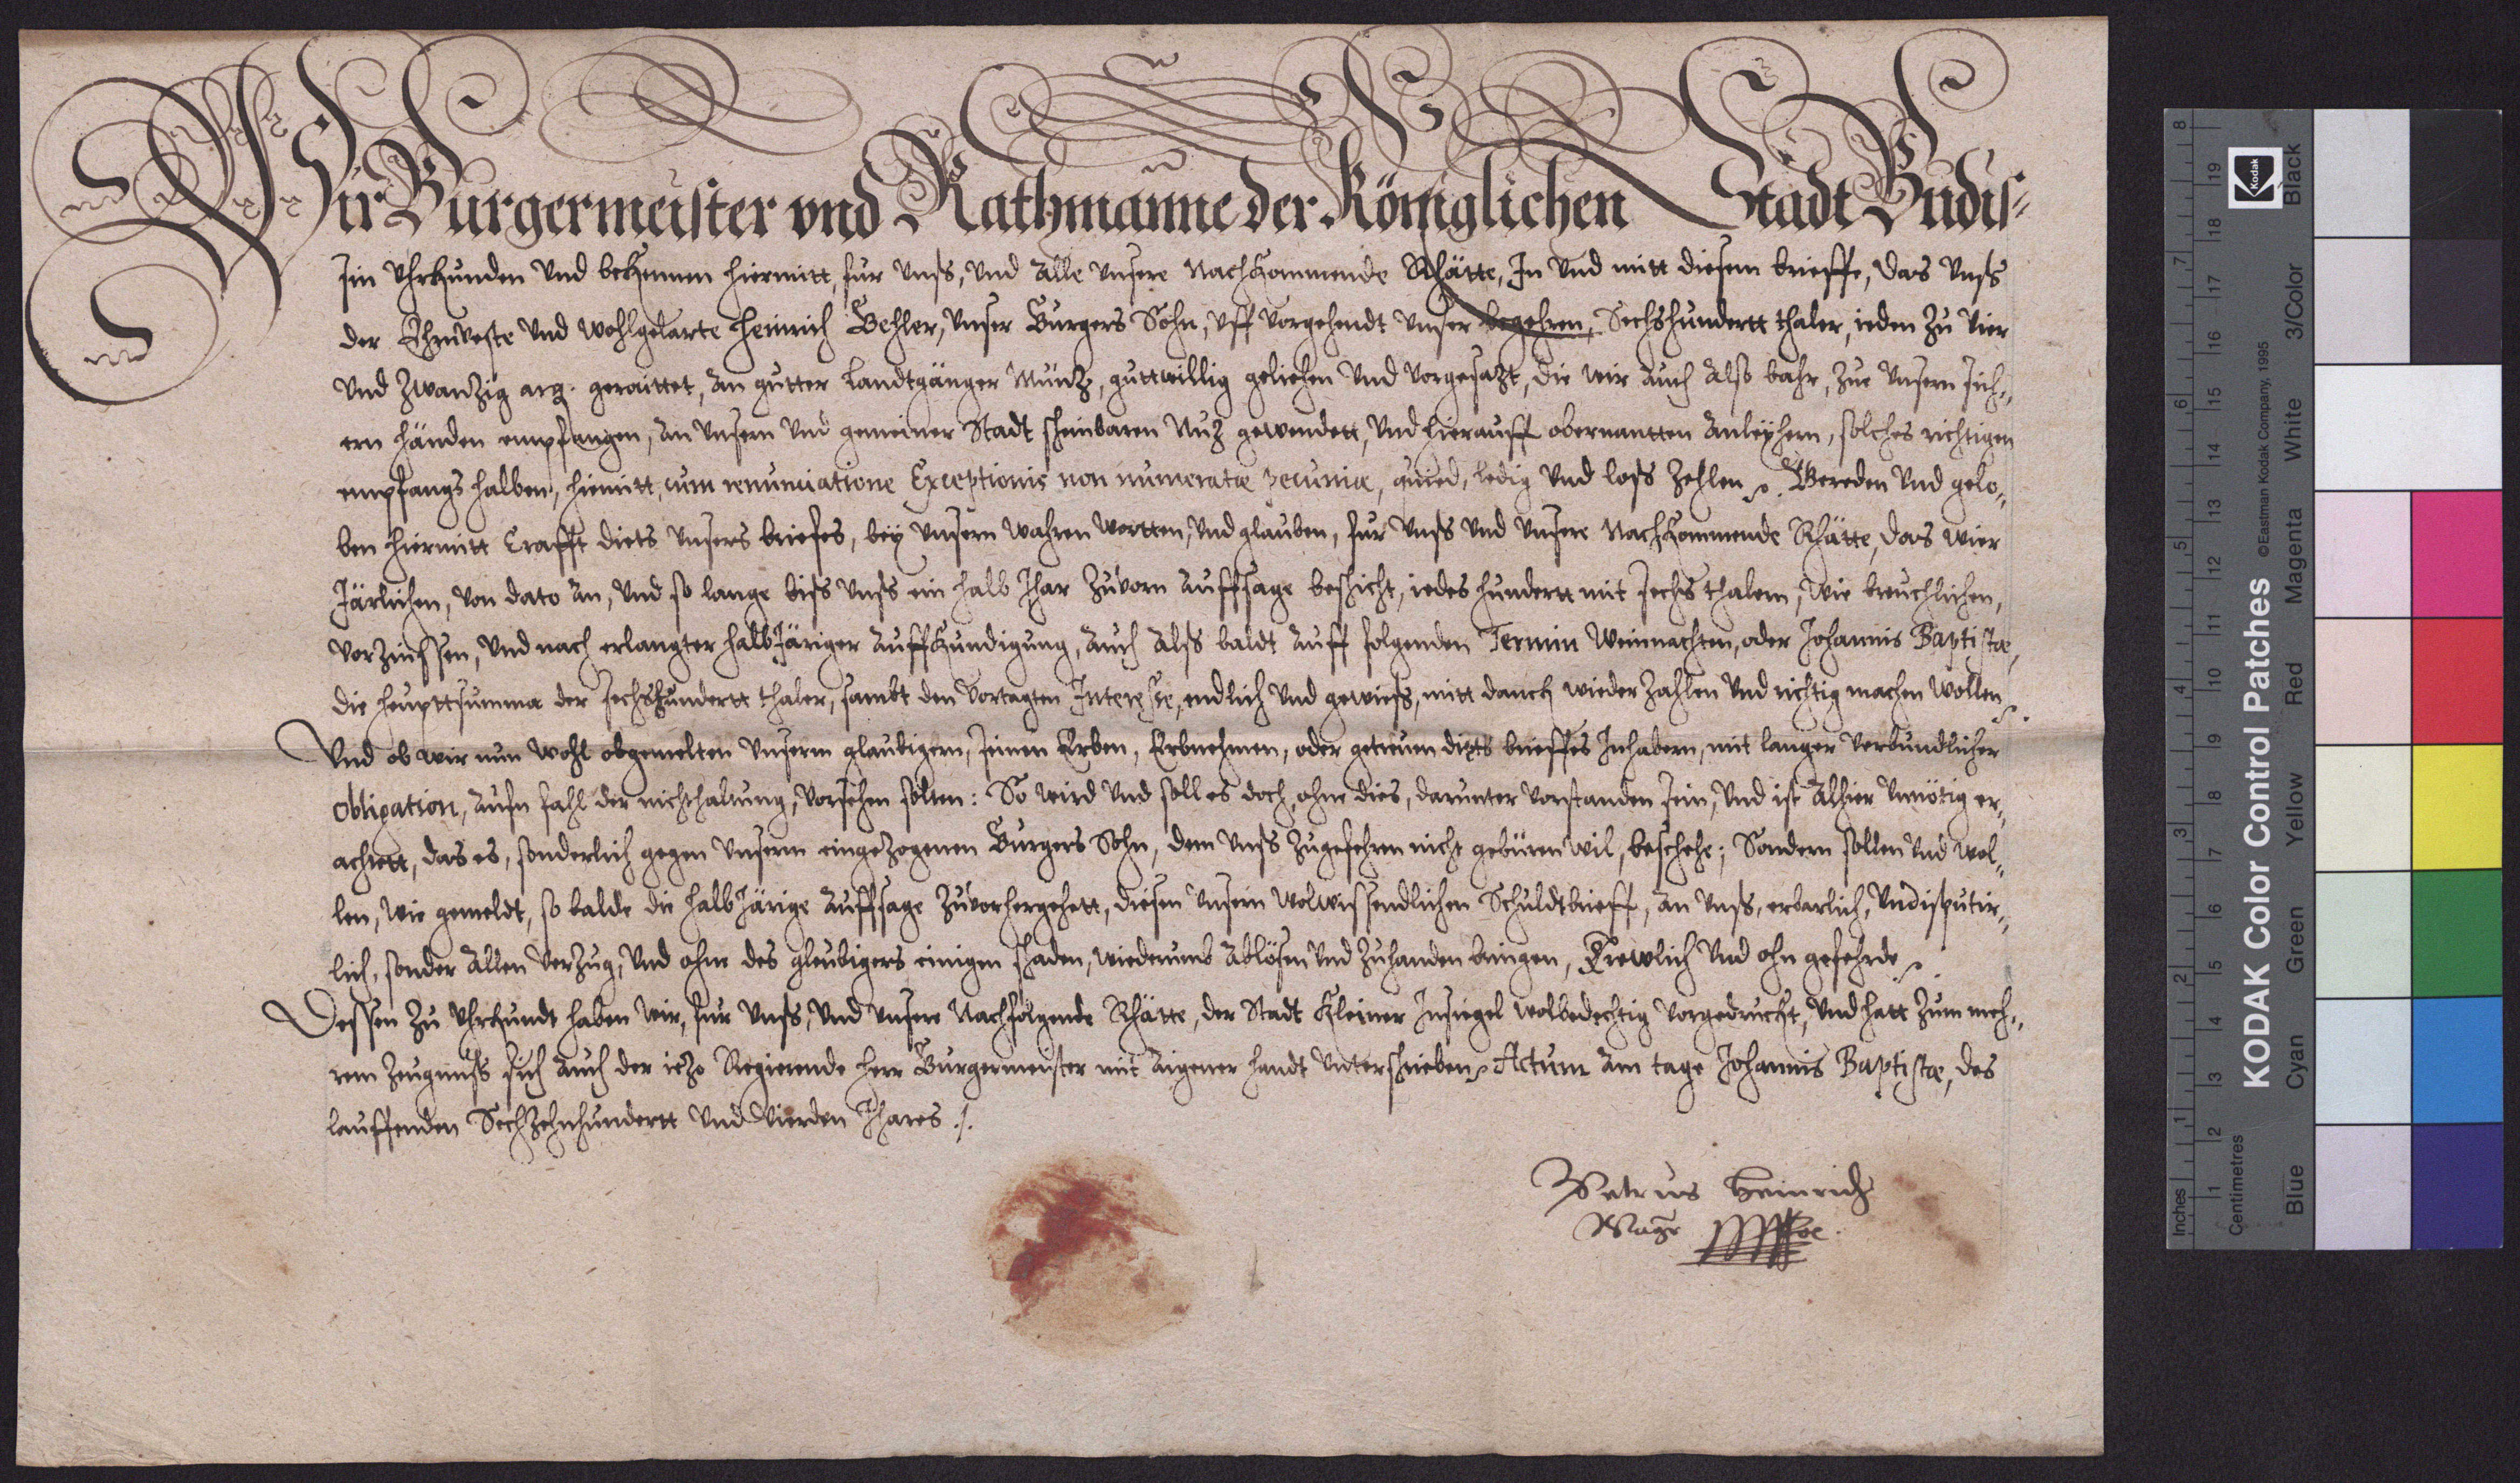 Wir Burgermeister vnd Rathmanne der Königlichen Stadt Budis-
sin Uhrkunden Und bekennen hiermitt, für Unß, Und Alle Unsere Nachkommende Rhätte, In Und mitt diesem brieffe, das Unß
der Ehrnveste Und Wohlgelarte Heinrich Behler, Unser Burgers Sohn, Uff Vorgehendt Unser begehren, Sechshundertt thaler, ieden zu Vier
Und Zwanzig arg. geraittet, An gutter Landtgänger Müntz, guttwillig geliehen Und Vorgesazt, die wir Auch Also bahr, zue Unsern sich-
ern händen empfangen, An Unsern Und gemeiner Stadt scheinbaren Nuz gewendett, Und hierauff obernantten Anleyhern, solches richtigen
empfangs halben, hiemitt, cum renunciatione Exceptionis non numeratæ pecuniæ, quied, ledig Und loß Zehlen. Bereden Und gelo-
ben hiermitt Crafft diets Unsers briefes, bey Unsern Wahren Wortten, Und glauben, für Unß Und Unsere Nachkommende Rhätte, das Wier
Järlichen, Von dato An, Und so lange biß Unß ein halb Jhar Zuvorn Auffsage beschicht, iedes hundertt mit sechs thalern, Wie breuchlichen,
Vorzinssen, Und nach erlangter halbJäriger Auffkundigung, Auch Alß baldt Auff folgenden Termin Weinnachten, oder Johannis Baptistæ,
die heupttsumma der sechshundertt thaler, sambt den Vortagten Interesse, endlich Und gewieß, mitt danck wieder Zahlen Und richtig machen Wollen.
Und ob wir nun Wohl obgemelten Unserm glaubigern, seinen Erben, Erbnehmen, oder getreuen diets brieffes Inhabern, mit langer Verbundlicher
Obligation, Aufn fahl der nichthaltung, Vorsehen solten: So wird Und soll es doch, ohne dies, darunter Vorstanden sein, Und ist Alhier Unnötig er-
achtett, das es, sonderlich gegen Unserm eingezogenen Burgers Sohn, dem Unß Zugefehren nicht gebüren wil, beschehe; Sondern sollen Und Wol-
len, Wie gemeldt, so balde die halbJärige Auffsage Zuvorhergehett, diesen Unsern Wolwissendlichen Schuldtbrieff, An Unß, erbarlich, Undisputir-
lich, sonder Allen Verzug, Und ohne des gleubigers einigen schaden, wiederumb Ablösen Und Zuhanden bringen, Trewlich Und ohn gefehrde.
Dessen Zu Uhrkundt haben Wir, für Unß, Und Unsere Nachfolgende Rhätte, der Stadt Kleiner Insiegel Wolbedechtig Vorgedruckt, Und hatt Zum meh-
rem Zeugnuß sich Auch der iezo Regierende Herr Burgermeister mit Aigener handt Unterschrieben. Actum Am tage Johannis Baptistæ, des
lauffenden Sechzehnhundertt Und Vierden Jhares ./.
Petrus Heinrich
Magr
KODAK Color Control Patches
©Eastman Kodak Company, 1995
Kodak
Inches 1 2 3 4 5 6 7 8
Centimetres 1 2 3 4 5 6 7 8 9 10 11 12 13 14 15 16 17 18 19
Blue Cyan Green Yellow Red Magenta White 3/Color Black